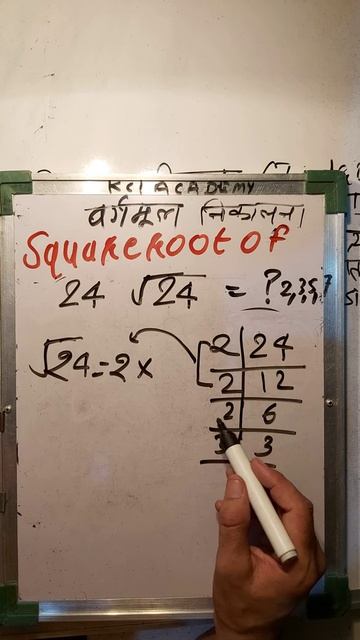 KCI ACADEMY
वर्गमूल निकालना
Square root of
24 √24 = ? 2,3,5,7
√24 = 2 ×
2 | 24
2 | 12
2 | 6
3 | 3